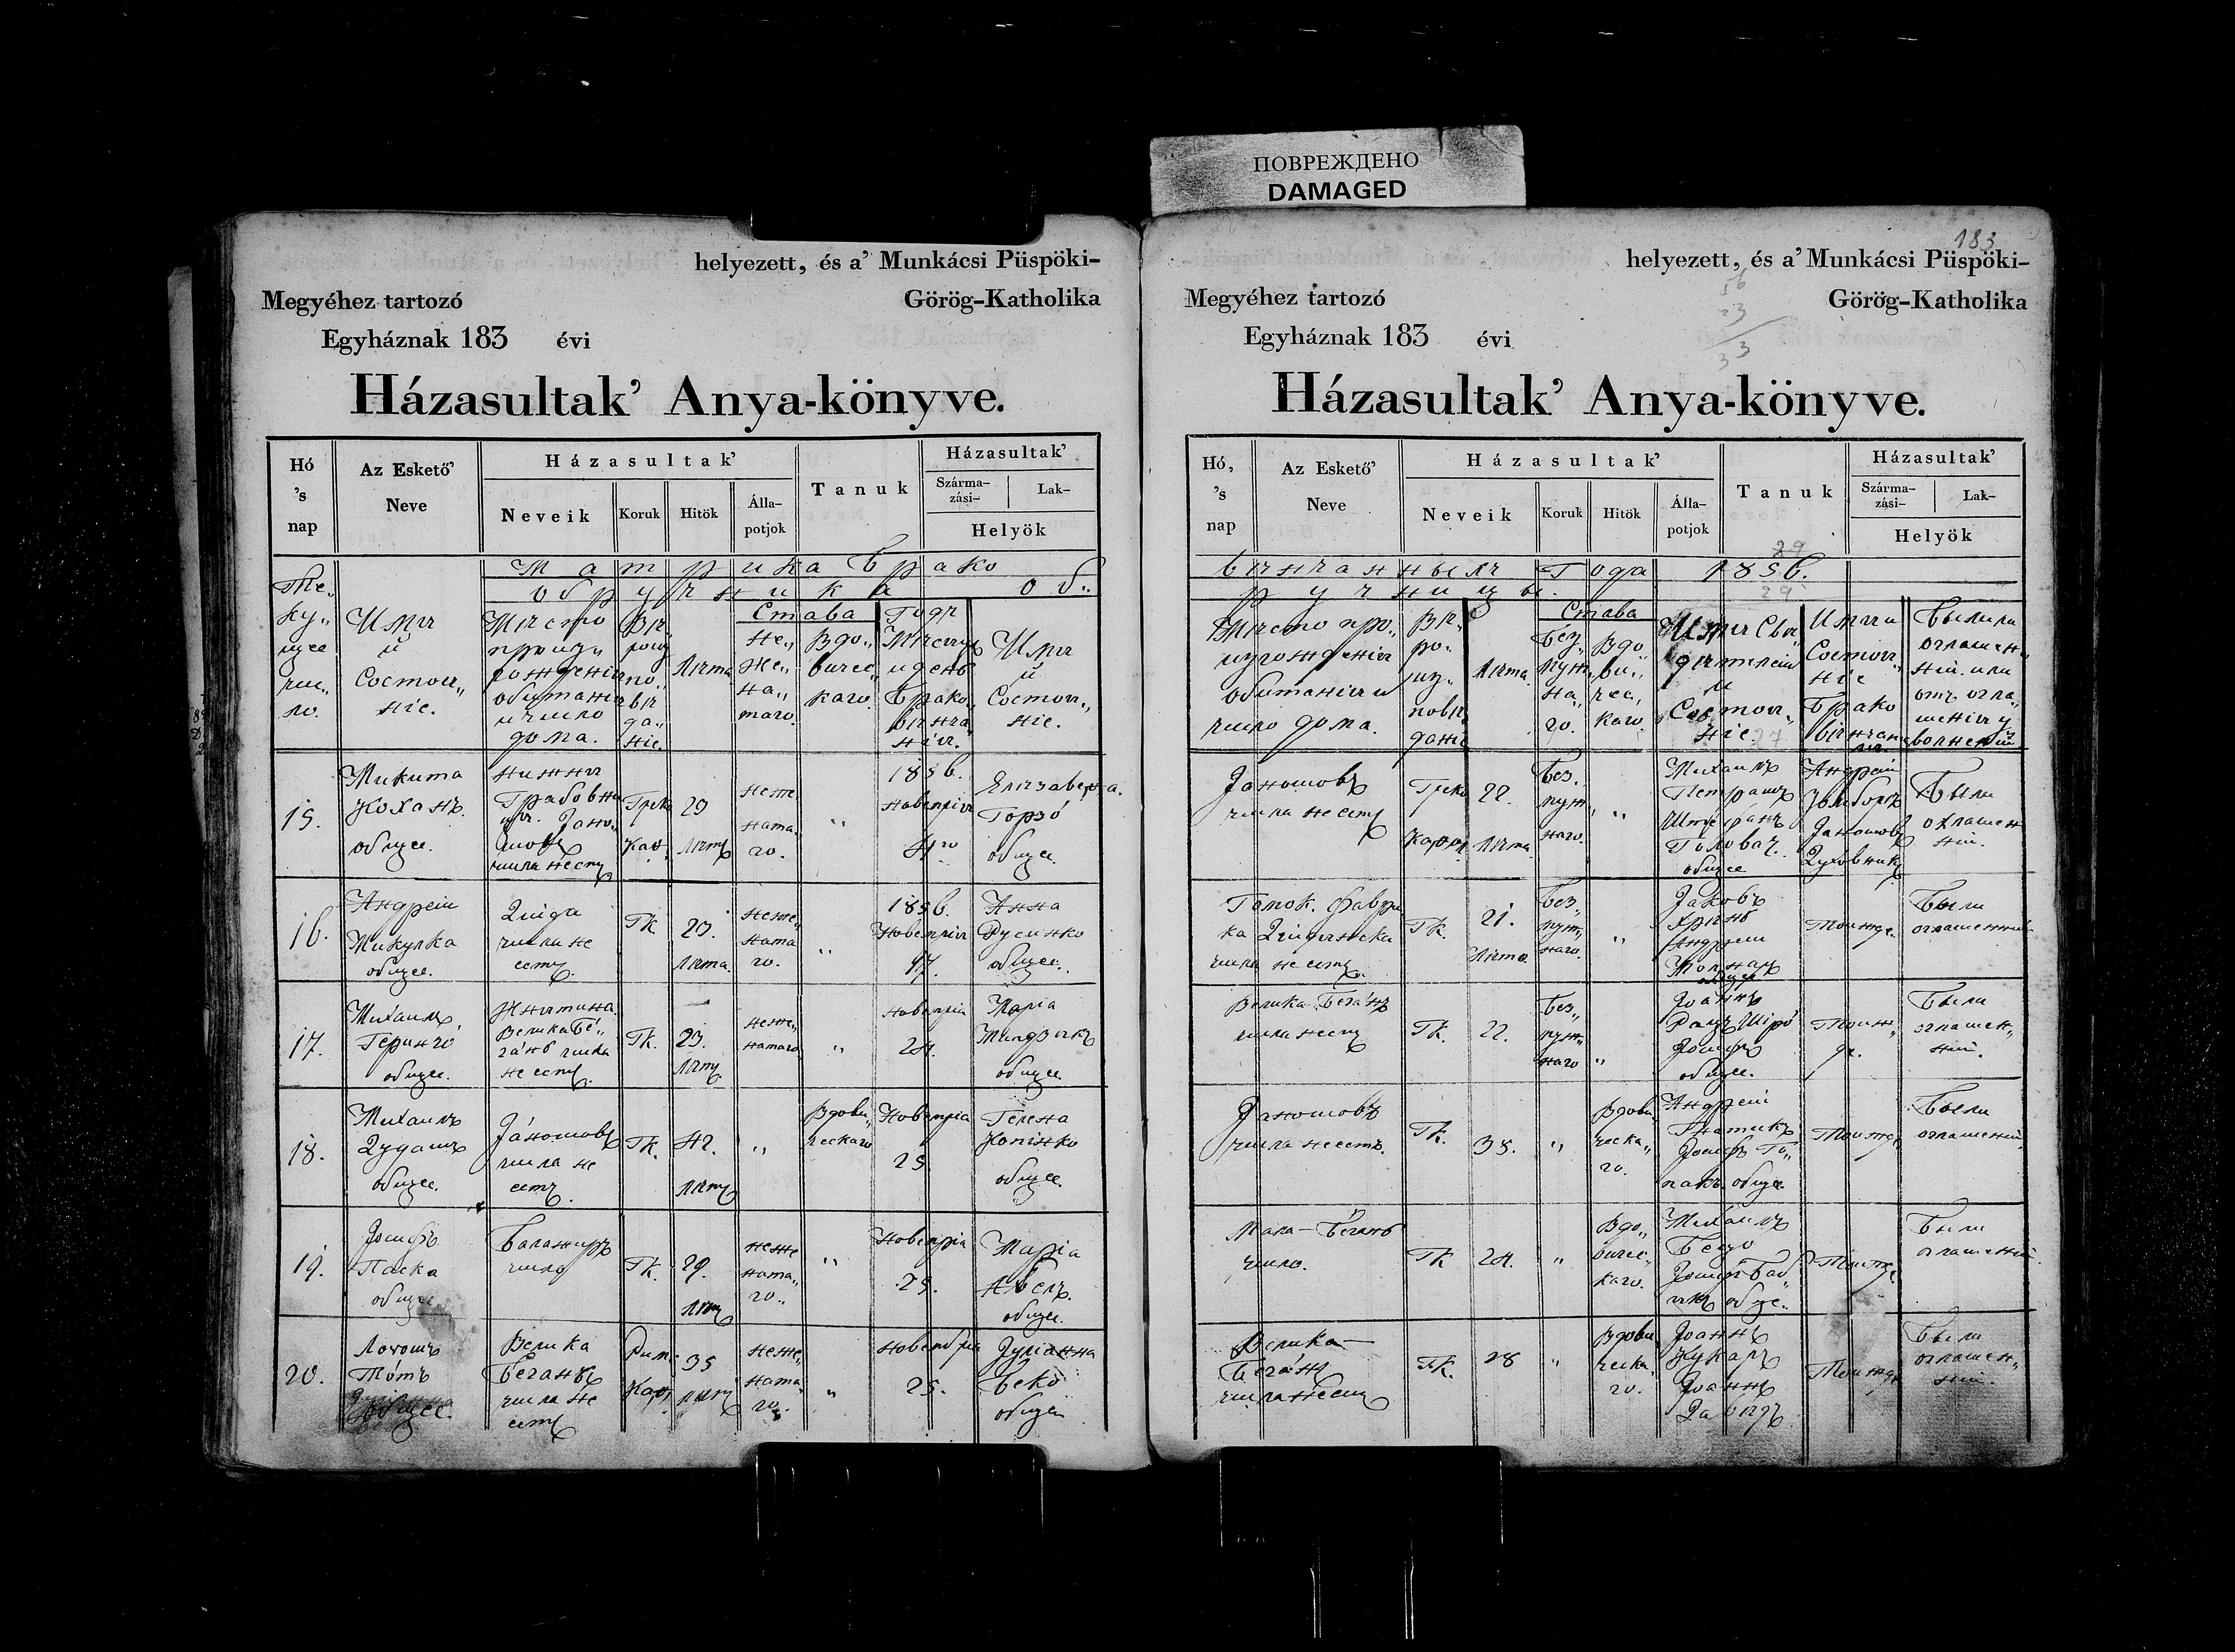 ПОВРЕЖДЕНО
DAMAGED
helyezett, és a' Munkácsi Püspöki-
Megyéhez tartozó Görög-Katholika
Egyháznak 183 évi
Házasultak' Anya-könyve.
Hó 's nap
Az Eskető' Neve
Házasultak'
Neveik
Koruk
Hitök
Álla-
potjok
Tanuk
Házasultak'
Szárma-
zási-
Lak-
Helyök
Матрика Брако
обручника об„
Те„
ку„
щее
чис„
ло.
Имя
и
Состоя„
ніе.
Мѣсто
рожденія
обитанія
и число
дома.
Вѣ„
Лѣта
Става
не„
же„
на„
таго.
Вдо„
вичес„
каго.
Годъ
Мѣсяцъ
и день
Брако„
вѣнча„
нія.
Имя
и
Состоя„
ніе.
15.
Микита
Коханъ.
общее.
нижня
числа несть
Греко
Кав.
23
Лѣтъ
неже
ната„
го.
„
1856.
новемрія
4го
Елизавета.
Горзо́
общее.
16.
Андрей
Микулка
общее.
числа не
есть.
ГК
23.
Лѣта.
неже„
ната
го.
„
1856.
Новемрія
17.
Анна
Русинко
общее.
17.
Михаилъ
Геринго
общее.
Велика Бе́„
га́нь числа
не есть.
ГК.
23.
Лѣтъ
неже„
натаго
„
Новемрія
24.
Марія
общее.
18.
Михаилъ
общее.
Яношовъ
числа не
есть.
ГК.
42.
Лѣтъ
„
Вдови„
ческаго
Новемріа
25.
Гелена
общее.
19.
Іосифъ
Паска
общее
Балажиръ
число
ГК.
29.
Лѣтъ
неже
ната„
го„
„
Новемріа
25.
Маріа
общее.
20.
Тотъ
общее.
Велика
Беганъ
числа не
есть
Рим.
Кав.
35
лѣтъ
неже„
ната„
го.
„
новембріа
25.
Юліанна
Беко
общее
183
helyezett, és a' Munkácsi Püspöki-
Megyéhez tartozó Görög-Katholika
Egyháznak 183 évi
56
23
33
Házasultak' Anya-könyve.
Hó, 's nap
Az Eskető' Neve
Házasultak'
Neveik
Koruk
Hitök
Álla-
potjok
Tanuk
Házasultak'
Szárma-
zási-
Lak-
Helyök
29
вѣнчанныхъ Года 1856.
ручницы.
29
Мѣсто про„
обитанія и
число дома.
Вѣ„
ро„
Лѣта
Става
Без„
муж„
на„
го.
Вдо„
ви„
чес„
каго
Имя Сви„
дѣтелей
и
Состоя„
ніе.
27
Имя и
Состоя„
ніе
Брако
вѣнчав„
Были ли
оглашен„
ній. или
отъ огла„
шенія у
Яношовъ
числа несть
Греко
22.
Лѣта.
Без„
муж„
наго.
„
Михаилъ
Петрашъ
Штефанъ
Головач.
общее
Андрей
Яношовъ
Духовникъ
Были
оглашен
ній.
числа не есть.
ГК.
21.
Лѣта.
Без„
муж„
наго.
„
Яковъ
Андреи
общее
Тонжде.
Были
оглашенній
Велика Бега́нъ
числа несть
ГК.
22.
Без„
муж„
наго
„
Іоаннъ
Іосифъ
общее.
Тонж„
де.
Были
оглашен„
ній.
Яношовъ
числа несть.
ГК.
35.
„
Вдови„
ческа„
го.
Андрей
Игнатикъ
Іосифъ Го„
общее
Тонжде
Были
оглашений
Мала - Беганъ
число.
ГК
24.
„
Вдо„
вичес„
каго.
Михаилъ
Бецо
Тонжде
Были
оглашений.
Велика -
Бега́нъ
числа несть
ГК.
28
„
Вдови„
ческа„
го.
Іоаннъ
Іоаннъ
Тонжде
Были
оглашен„
ній.